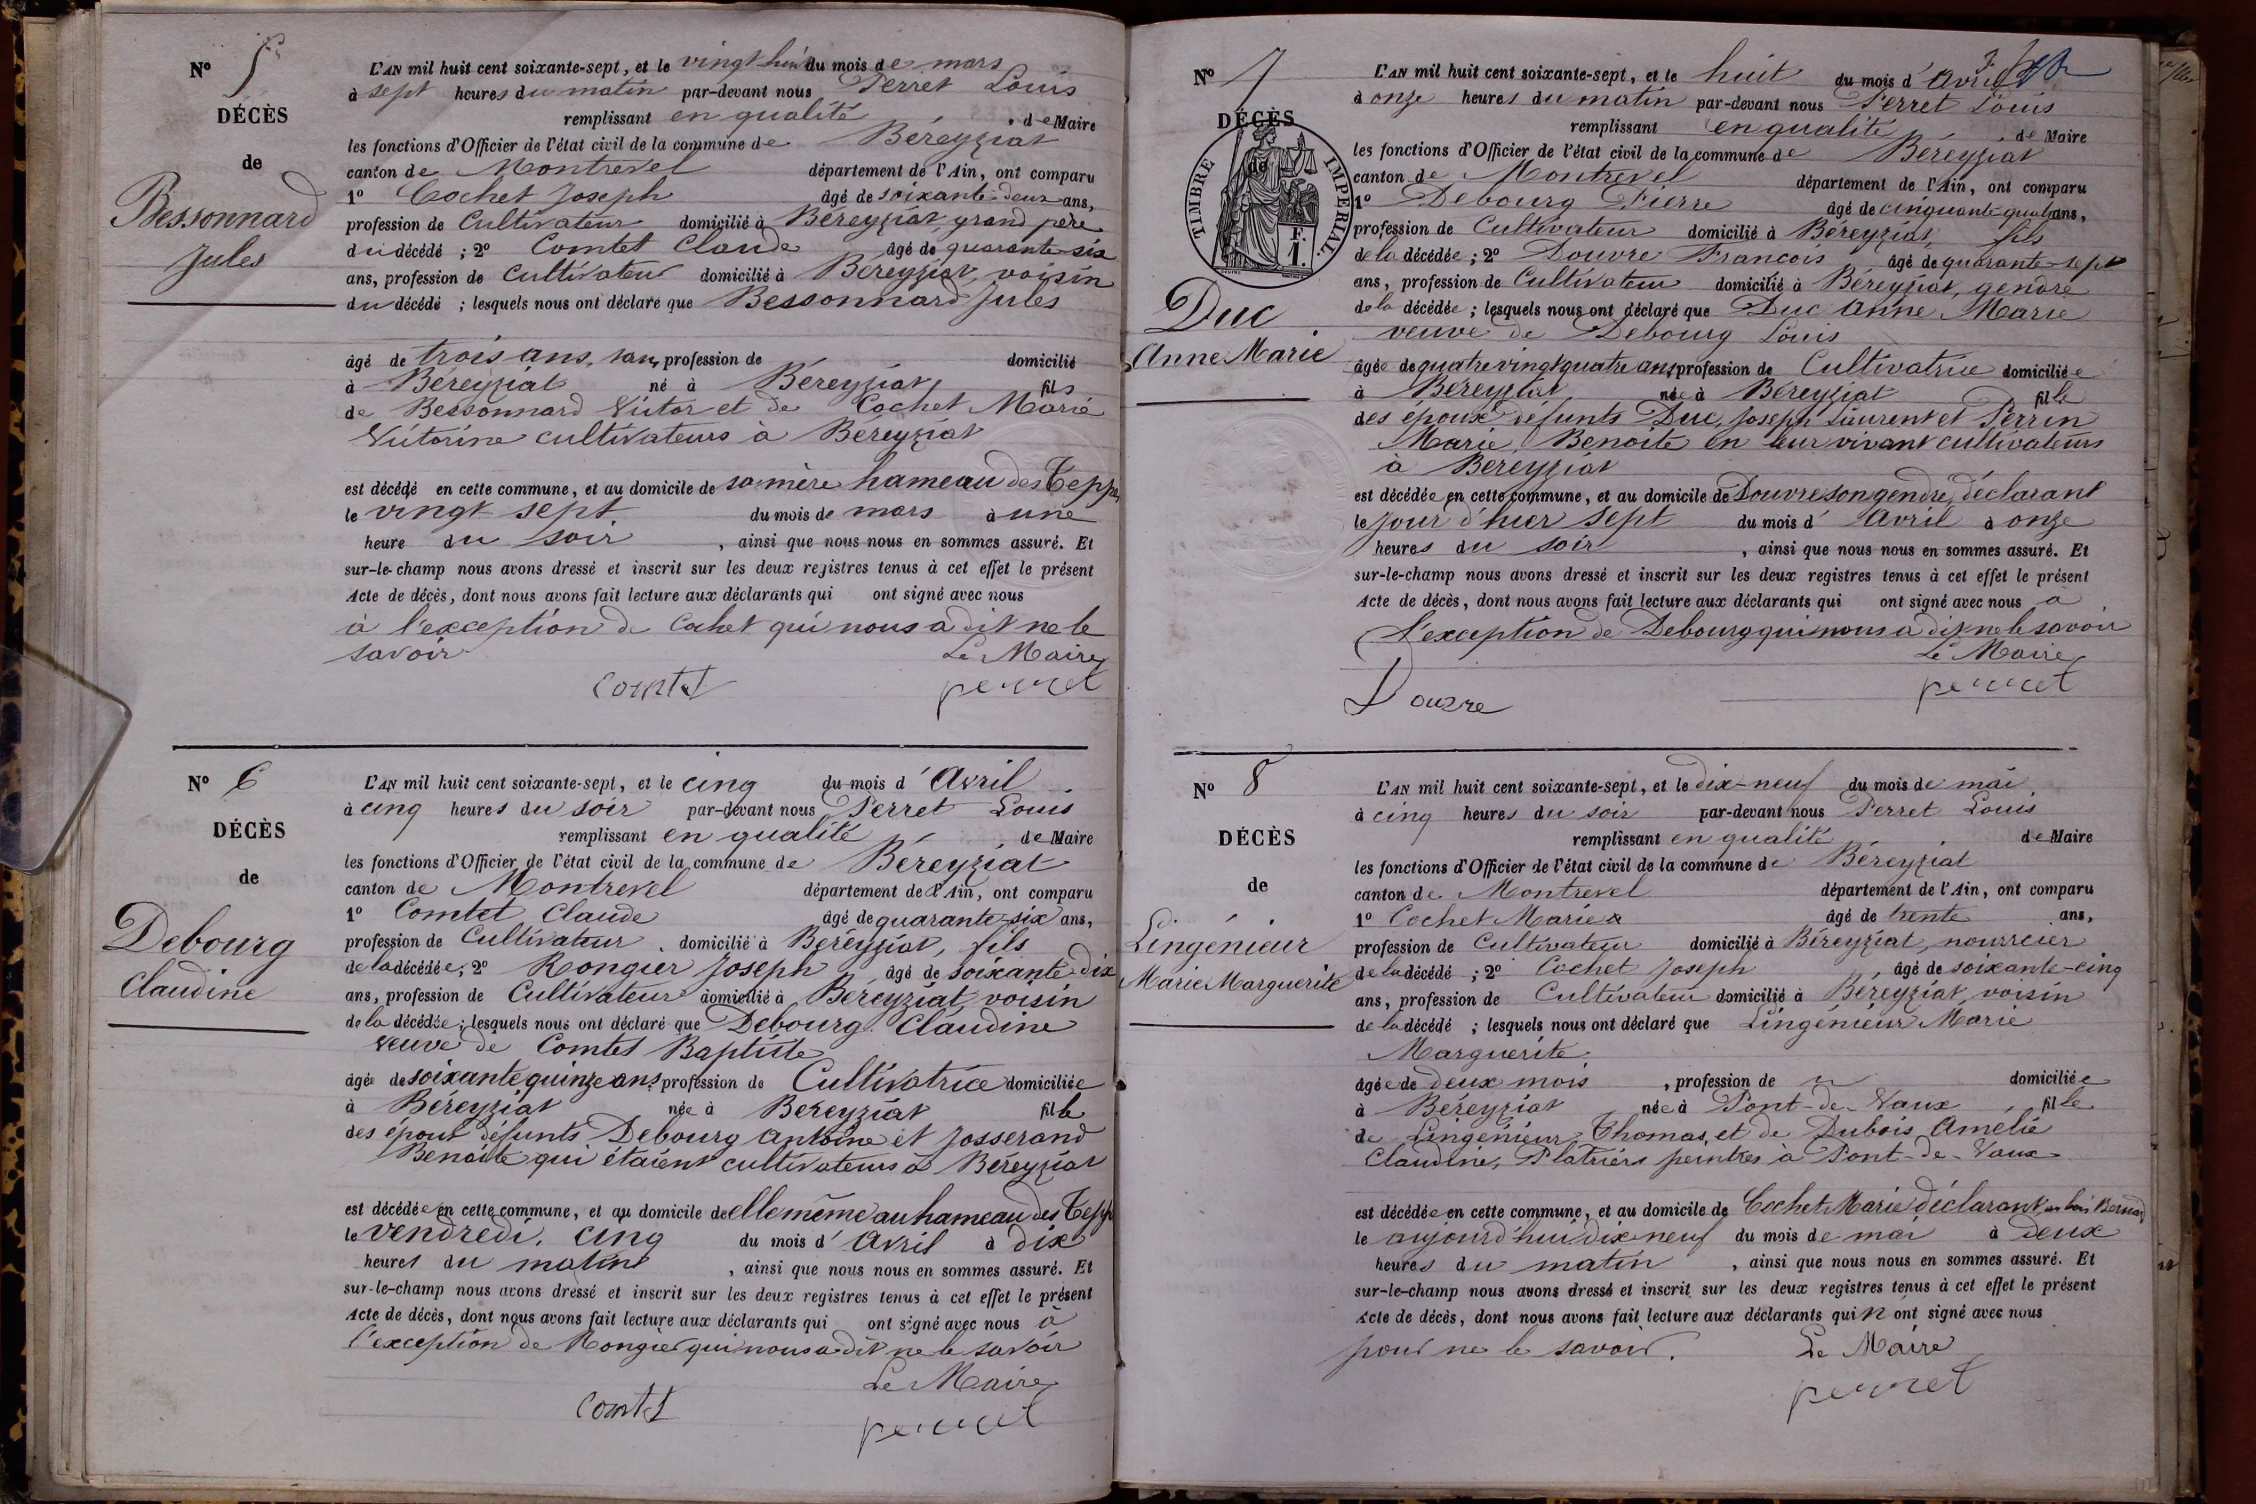 Nº 5
DÉCÈS
de
Bessonnard
Jules
L'AN mil huit cent soixante-sept, et le vingt huit du mois de mars
à sept heures du matin par-devant nous Perret Louis
remplissant en qualité de Maire
les fonctions d'Officier de l'état civil de la commune de Béreyziat
canton de Montrevel département de l'Ain, ont comparu
1º Cochet Joseph âgé de soixante deux ans,
profession de Cultivateur domicilié à Béreyziat, grand père
du décédé ; 2º Comtet Claude âgé de quarante six
ans, profession de Cultivateur domicilié à Béreyziat, voisin
du décédé ; lesquels nous ont déclaré que Bessonnard Jules
âgé de trois ans, sans profession de domicilié
à Béreyziat né à Béreyziat, fils
de Bessonnard Victor et de Cochet Marie
Victorine cultivateurs à Béreyziat
est décédé en cette commune, et au domicile de sa mère hameau des Tepp
le vingt sept du mois de mars à une
heure du soir, ainsi que nous nous en sommes assuré. Et
sur-le-champ nous avons dressé et inscrit sur les deux registres tenus à cet effet le présent
Acte de décès, dont nous avons fait lecture aux déclarants qui ont signé avec nous
à l'exception de Cochet qui nous a dit ne le
savoir Le Maire
Comtet perret
Nº 6
DÉCÈS
de
Debourg
Claudine
L'AN mil huit cent soixante-sept, et le cinq du mois d'Avril
à cinq heures du soir par-devant nous Perret Louis
remplissant en qualité de Maire
les fonctions d'Officier de l'état civil de la commune de Béreyziat
canton de Montrevel département de l'Ain, ont comparu
1º Comtet Claude âgé de quarante-six ans,
profession de Cultivateur, domicilié à Béreyziat, fils
de la décédée; 2º Rongier Joseph âgé de soixante dix
ans, profession de Cultivateur domicilié à Béreyziat, voisin
de la décédée; lesquels nous ont déclaré que Debourg Claudine
veuve de Comtet Baptiste
âgée de soixante quinze ans, profession de Cultivatrice domiciliée
à Béreyziat née à Béreyziat fille
des époux défunts Debourg Antoine et Josserand
Benoite qui étaient cultivateurs à Béreyziat
est décédée en cette commune, et au domicile de elle même au hameau des Tepp
le vendredi, cinq du mois d'Avril à dix
heures du matin, ainsi que nous nous en sommes assuré. Et
sur-le-champ nous avons dressé et inscrit sur les deux registres tenus à cet effet le présent
Acte de décès, dont nous avons fait lecture aux déclarants qui ont signé avec nous à
l'exception de Rongier qui nous a dit ne le savoir
Le Maire
Comtet perret
Nº 7
DÉCÈS
de
TIMBRE IMPÉRIAL
F.
1.
Duc
Anne Marie
L'AN mil huit cent soixante-sept, et le huit du mois d'Avril
à onze heures du matin par-devant nous Perret Louis
remplissant en qualité de Maire
les fonctions d'Officier de l'état civil de la commune de Béreyziat
canton de Montrevel département de l'Ain, ont comparu
1º Debourg Pierre âgé de cinquante quatre ans,
profession de Cultivateur domicilié à Béreyziat, fils
de la décédée ; 2º Douvre Francois âgé de quarante-sept
ans, profession de Cultivateur domicilié à Béreyziat, gendre
de la décédée ; lesquels nous ont déclaré que Duc Anne Marie
veuve de Debourg Louis
âgée de quatre vingt quatre ans, profession de Cultivatrice domiciliée
à Béreyziat née à Béreyziat fille
des époux défunts Duc, Joseph Laurent et Perrin
Marie Benoite en leur vivant cultivateurs
à Béreyziat
est décédée en cette commune, et au domicile de Douvre son gendre, déclarant
le jour d'hier sept du mois d'Avril à onze
heures du soir, ainsi que nous nous en sommes assuré. Et
sur-le-champ nous avons dressé et inscrit sur les deux registres tenus à cet effet le présent
Acte de décès, dont nous avons fait lecture aux déclarants qui ont signé avec nous à
l'exception de Debourg qui nous a dit ne le savoir
Le Maire
Douvre perret
Nº 8
DÉCÈS
de
Lingénieur
Marie Marguerite
L'AN mil huit cent soixante-sept, et le dix-neuf du mois de mai
à cinq heures du soir par-devant nous Perret Louis
remplissant en qualité de Maire
les fonctions d'Officier de l'état civil de la commune de Béreyziat
canton de Montrevel département de l'Ain, ont comparu
1º Cochet Marie âgé de trente ans,
profession de Cultivateur domicilié à Béreyziat, nourricier
de la décédé ; 2º Cochet Joseph, âgé de soixante-cinq
ans, profession de Cultivateur domicilié à Béreyziat, voisin
de la décédé ; lesquels nous ont déclaré que Lingénieur Marie
Marguerite
âgée de deux mois, profession de domiciliée
à Béreyziat née à Pont-de-Vaux, fille
de Lingénieur Thomas, et de Dubois Amélie
Claudine, Platriers peintres à Pont-de-Vaux
est décédée en cette commune, et au domicile de Cochet Marie déclarant, au bois Bernard
le aujourd'hui dix neuf du mois de mai à deux
heures du matin, ainsi que nous nous en sommes assuré. Et
sur-le-champ nous avons dressé et inscrit sur les deux registres tenus à cet effet le présent
Acte de décès, dont nous avons fait lecture aux déclarants qui n'ont signé avec nous
pour ne le savoir. Le Maire
perret